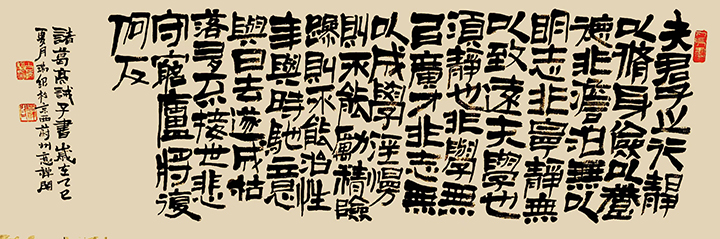 夫君子之行靜
以脩身儉以養
德非澹泊無以
明志非寧靜無
以致遠夫學也
須靜也非學無
㠯廣才非志無
以成學淫慢
則不能勵精險
躁則不能治性
年與時馳意
與日去遂成枯
落多不接世悲
守窮廬將復
何及
諸葛亮誡子書歲在乙巳
夏月瑞於京西蔚州禪閣